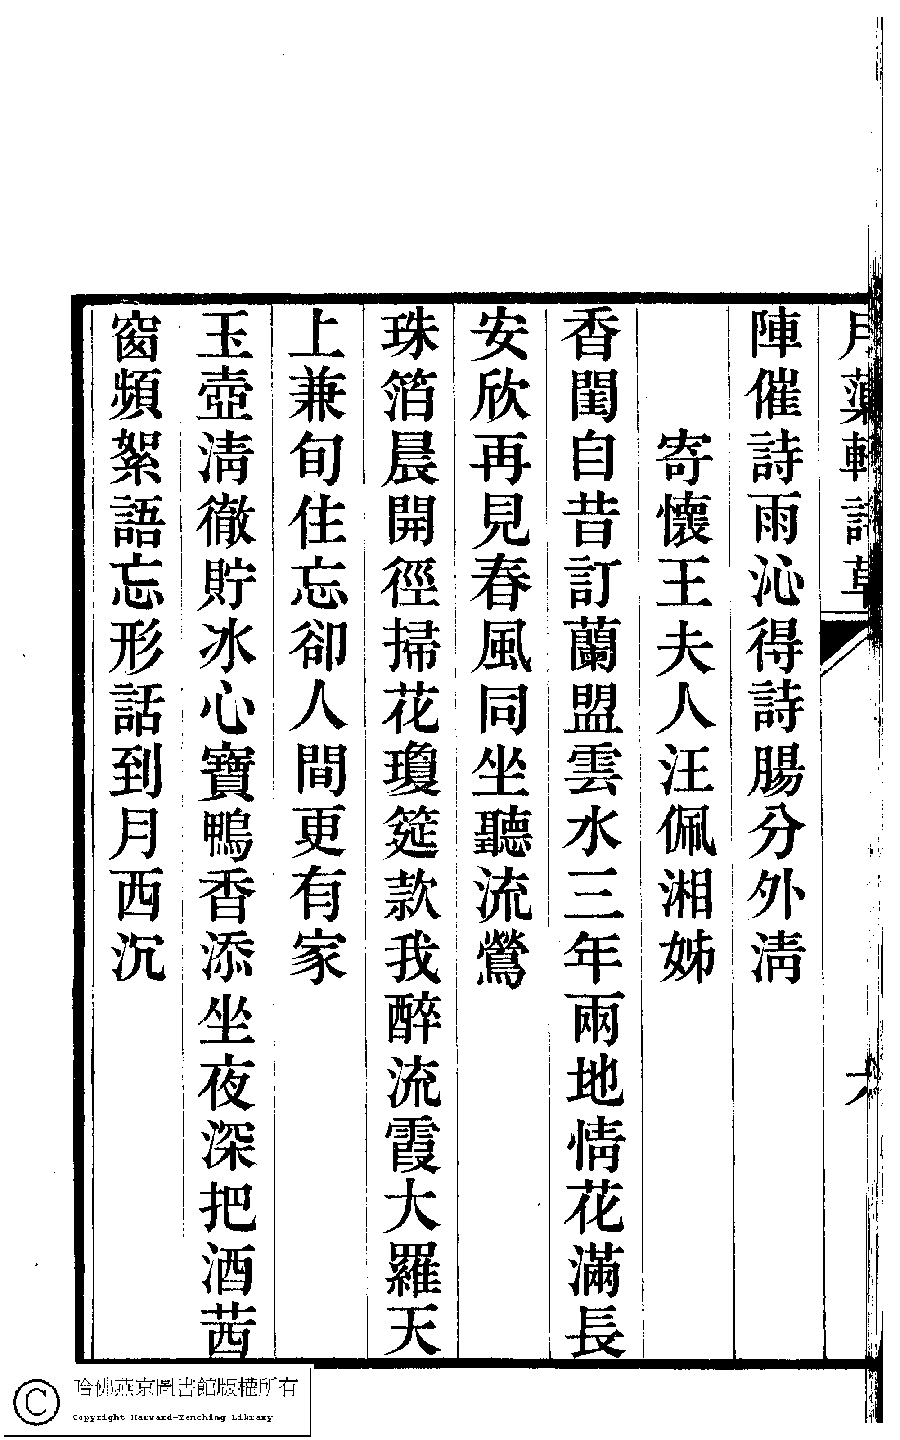 月蕖軒詩草
陣催詩雨沁得詩腸分外清
寄懷王夫人汪佩湘姊
香閨自昔訂蘭盟雲水三年兩地情花滿長
安欣再見春風同坐聽流鶯
珠箔晨開徑掃花瓊筵款我醉流霞大羅天
上兼旬住忘卻人間更有家
玉壺清徹貯冰心寶鴨香添坐夜深把酒茜
窗頻絮語忘形話到月西沉
哈佛燕京圖書館版權所有
Copyright Harvard-Yenching Library